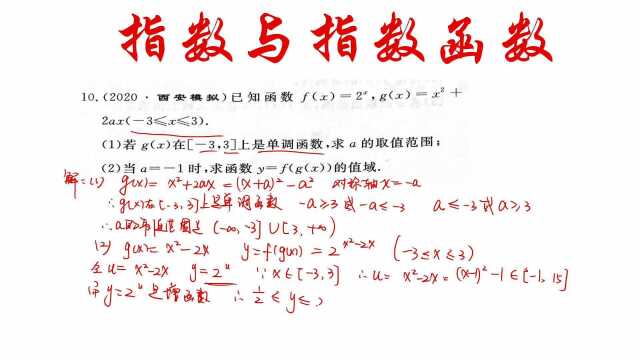 指数与指数函数
10.(2020·西安模拟)已知函数 f(x)=2ˣ,g(x)=x²+
2ax(-3≤x≤3).
(1)若 g(x)在[-3,3]上是单调函数,求 a 的取值范围;
(2)当 a=-1 时,求函数 y=f(g(x))的值域.
解:(1) g(x)=x²+2ax=(x+a)²-a² 对称轴x=-a
∴g(x)在[-3,3]上是单调函数 -a≥3或-a≤-3 a≤-3或a≥3
∴a的取值范围是(-∞,-3]∪[3,+∞)
(2) g(x)=x²-2x y=f(g(x))=2^(x²-2x) (-3≤x≤3)
令u=x²-2x y=2ᵘ ∵x∈[-3,3] ∴u=x²-2x=(x-1)²-1∈[-1,15]
而y=2ᵘ是增函数 ∴1/2≤y≤